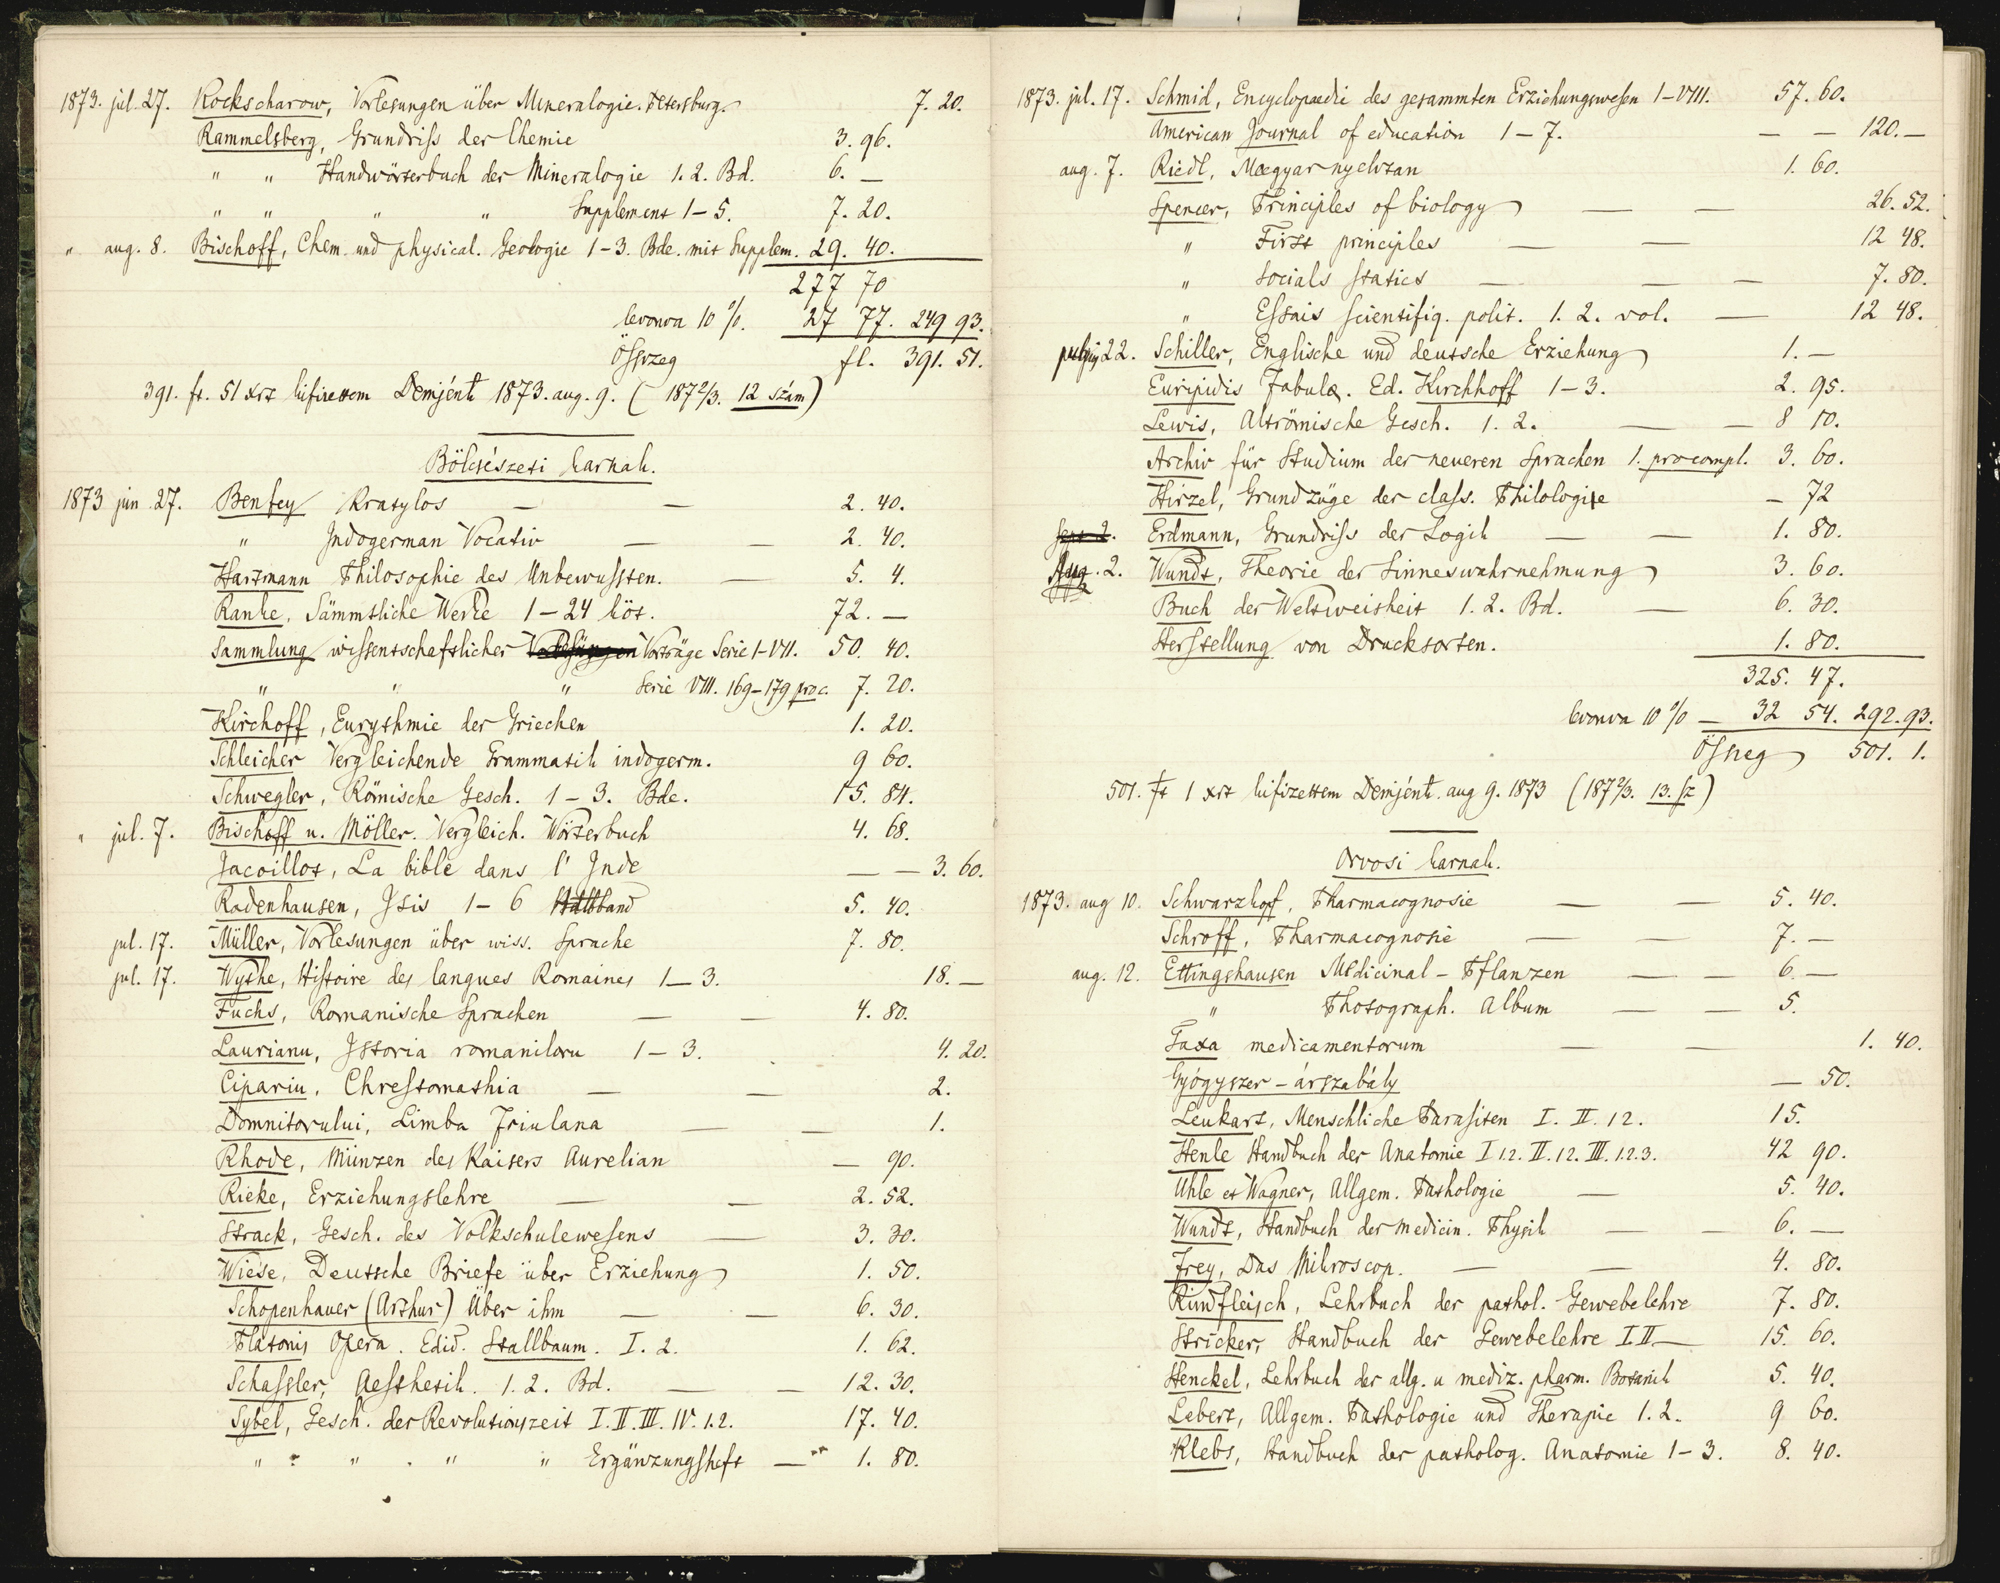 1873. jul. 27. Kockscharow, Vorlesungen über Mineralogie. Petersburg. 7. 20.
Rammelsberg, Grundriss der Chemie 3. 96.
" " Handwörterbuch der Mineralogie 1. 2. Bd. 6. —
" " " " Supplement 1–5. 7. 20.
" aug. 8. Bischoff, Chem. und physical. Geologie 1–3. Bde. mit Supplem. 29. 40.
277 70
levonva 10 %. 27 77. 249 93.
Összeg fl. 391. 51.
391. ft. 51 xrt kifizettem Demjént. 1873. aug. 9. ( 1872/3. 12 szám)
Bölcsészeti karnak.
1873 jun 27. Benfey Kratylos — — 2. 40.
" Indogerman Vocativ — — 2. 40.
Hartmann Philosophie des Unbewussten. — 5. 4.
Ranke, Sämmtliche Werke 1–24 köt. 72. —
Sammlung wissenschaftlicher Vorträge Serie 1–VII. 50. 40.
" " " Serie VIII. 169–179 proc. 7. 20.
Kirchoff, Eurythmie der Griechen 1. 20.
Schleicher Vergleichende Grammatik indogerm. 9 60.
Schwegler, Römische Gesch. 1–3. Bde. 15. 84.
" jul. 7. Bischoff u. Möller. Vergleich. Wörterbuch 4. 68.
Jacoillot, La bible dans l' Inde — — 3. 60.
Radenhausen, Isis 1–6 Halbband 5. 40.
jul. 17. Müller, Vorlesungen über wiss. Sprache 7. 80.
jul. 17. Wythe, Histoire des langues Romaines 1–3. 18. —
Fuchs, Romanische Sprachen — — 4. 80.
Laurianu, Istoria romaniloru 1–3. 4. 20.
Cipariu, Chrestomathia — — 2.
Domnitorului, Limba Friulana — — 1.
Rhode, Münzen des Kaisers Aurelian — 90.
Rieke, Erziehungslehre — — 2. 52.
Strack, Gesch. des Volkschulewesens — 3. 30.
Wiese, Deutsche Briefe über Erziehung 1. 50.
Schopenhauer (Arthur) Über ihm — — 6. 30.
Platonis Opera. Edid. Stallbaum. I. 2. 1. 62.
Schassler, Aesthetik. 1. 2. Bd. — — 12. 30.
Sybel, Gesch. der Revolutionszeit I. II. III. IV. 1. 2. 17. 40.
" " " " Ergänzungsheft — 1. 80.
1873. jul. 17. Schmid, Encyclopaedie des gesammten Erziehungswesen 1–VIII. 57. 60.
American Journal of education 1–7. — — 120. —
aug. 7. Riedl, Magyar nyelvtan 1. 60.
Spencer, Principles of biology — — 26. 52.
" First principles — — 12 48.
" Socials statics — — — 7. 80.
" Essais scientifiq. polit. 1. 2. vol. — 12 48.
22. Schiller, Englische und deutsche Erziehung 1. —
Euripidis Fabulæ. Ed. Kirchhoff 1–3. 2. 95.
Lewis, Altrömische Gesch. 1. 2. — — 8 10.
Archiv für Studium der neueren Sprachen 1. pro compl. 3. 60.
Hirzel, Grundzüge der class. Philologie — 72
Sept. 2. Erdmann, Grundriss der Logik — — 1. 80.
Aug. 2. Wundt, Theorie der Sinneswahrnehmung 3. 60.
Buch der Weltweisheit 1. 2. Bd. — 6. 30.
Herstellung von Drucksorten. 1. 80.
325. 47.
levonva 10 % — 32 54. 292. 93.
Összeg 501. 1.
501. ft 1 xrt kifizettem Demjént. aug 9. 1873 (1872/3. 13. sz)
Orvosi karnak.
1873. aug 10. Schwarzkopf, Pharmacognosie — — 5. 40.
Schroff, Pharmacognosie — — 7. —
aug. 12. Ettingshausen Medicinal-Pflanzen — — 6. —
" Photograph. Album — — 5.
Taxa medicamentorum — — 1. 40.
Gyógyszer-árszabály — 50.
Leukart, Menschliche Parasiten I. II. 1 2. 15.
Henle Handbuch der Anatomie I 1.2. II. 1 2. III. 1.2.3. 42 90.
Uhle et Wagner, Allgem. Pathologie — 5. 40.
Wundt, Handbuch der medicin. Physik — — 6. —
Frey, Das Mikroscop. — — 4. 80.
Rindfleisch, Lehrbuch der pathol. Gewebelehre 7. 80.
Stricker, Handbuch der Gewebelehre I. II — 15. 60.
Henckel, Lehrbuch der allg. u mediz. pharm. Botanik 5. 40.
Lebert, Allgem. Pathologie und Therapie 1. 2. 9 60.
Klebs, Handbuch der patholog. Anatomie 1–3. 8. 40.